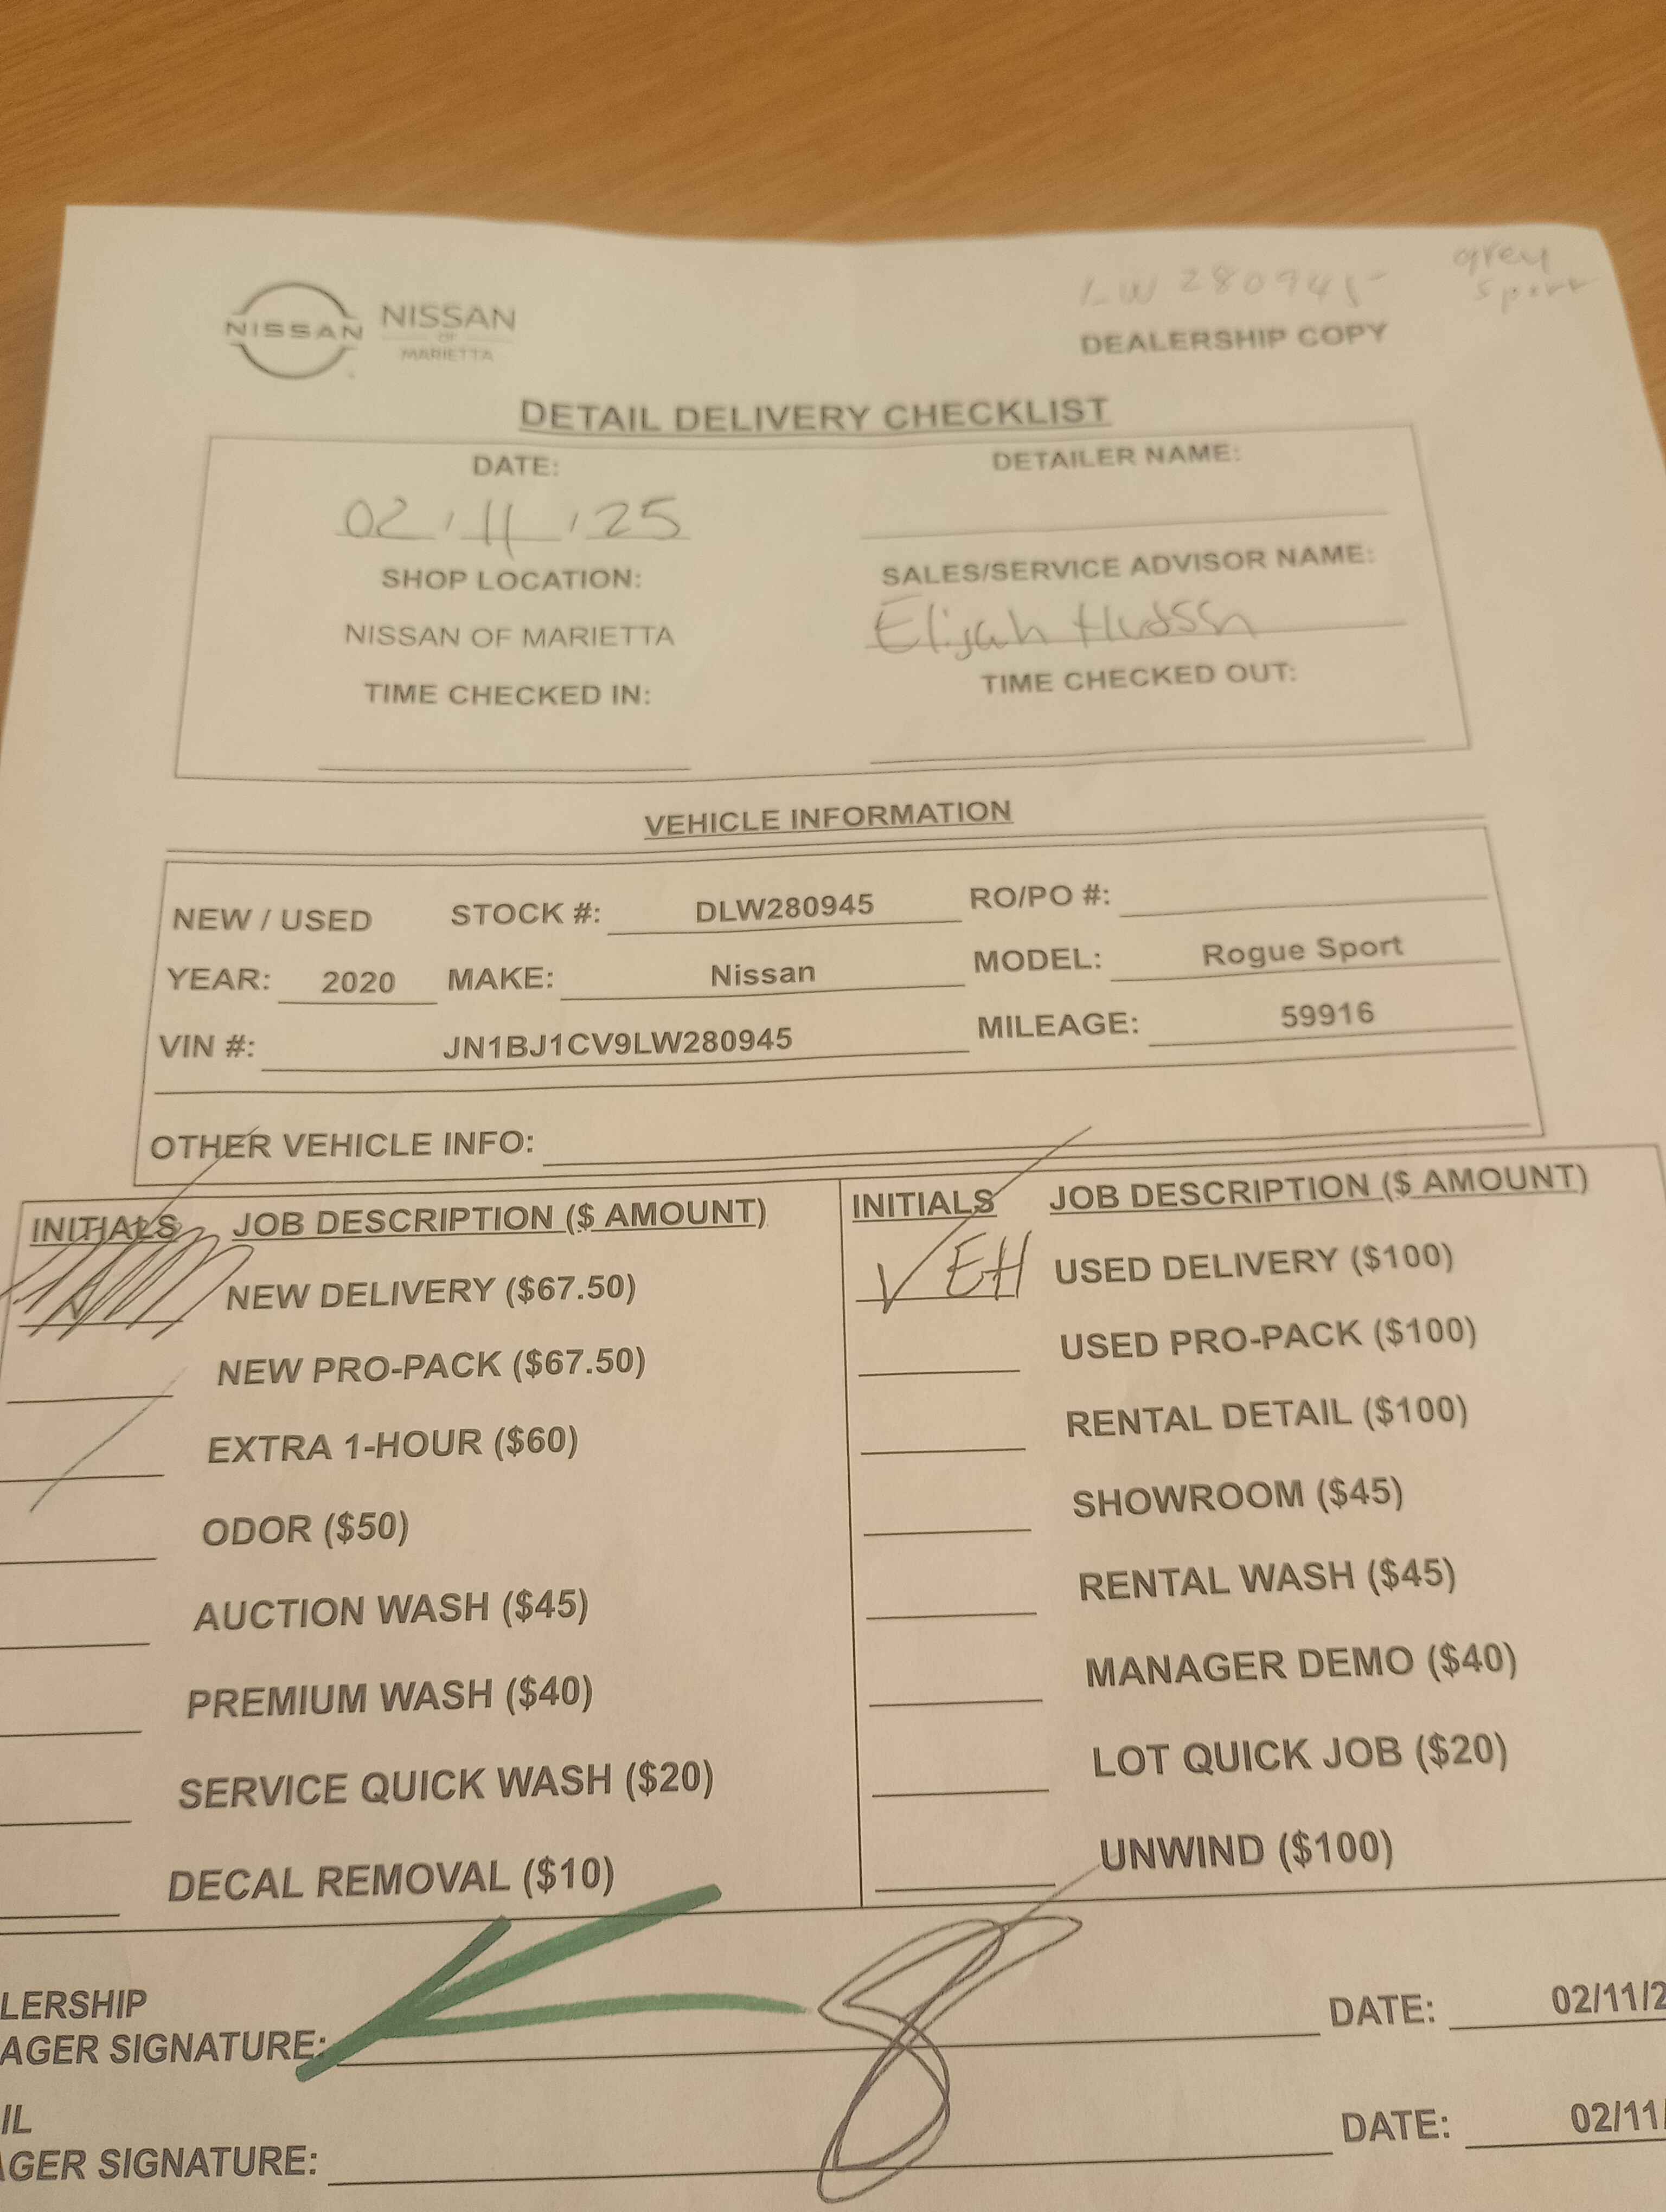 LW280945 grey
sport
NISSAN NISSAN
OF
MARIETTA
DEALERSHIP COPY
DETAIL DELIVERY CHECKLIST
DATE: DETAILER NAME:
02/11/25
SHOP LOCATION: SALES/SERVICE ADVISOR NAME:
NISSAN OF MARIETTA Elijah Hudson
TIME CHECKED IN: TIME CHECKED OUT:
VEHICLE INFORMATION
NEW / USED STOCK #: DLW280945 RO/PO #:
YEAR: 2020 MAKE: Nissan MODEL: Rogue Sport
VIN #: JN1BJ1CV9LW280945 MILEAGE: 59916
OTHER VEHICLE INFO:
INITIALS JOB DESCRIPTION ($ AMOUNT)
NEW DELIVERY ($67.50)
NEW PRO-PACK ($67.50)
EXTRA 1-HOUR ($60)
ODOR ($50)
AUCTION WASH ($45)
PREMIUM WASH ($40)
SERVICE QUICK WASH ($20)
DECAL REMOVAL ($10)
INITIALS JOB DESCRIPTION ($ AMOUNT)
EH USED DELIVERY ($100)
USED PRO-PACK ($100)
RENTAL DETAIL ($100)
SHOWROOM ($45)
RENTAL WASH ($45)
MANAGER DEMO ($40)
LOT QUICK JOB ($20)
UNWIND ($100)
LERSHIP
AGER SIGNATURE: DATE: 02/11/2
IL
GER SIGNATURE: DATE: 02/11/